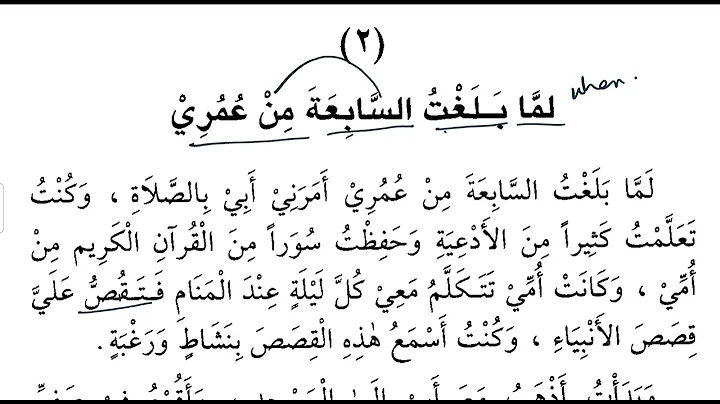 (٢)
لَمَّا بَلَغْتُ السَّابِعَةَ مِنْ عُمُرِيْ
when.
لَمَّا بَلَغْتُ السَّابِعَةَ مِنْ عُمُرِيْ أَمَرَنِيْ أَبِيْ بِالصَّلَاةِ ، وَكُنْتُ
تَعَلَّمْتُ كَثِيراً مِنَ الأَدْعِيَةِ وَحَفِظْتُ سُوَراً مِنَ الْقُرآنِ الْكَرِيمِ مِنْ
أُمِّيْ ، وَكَانَتْ أُمِّيْ تَتَكَلَّمُ مَعِيْ كُلَّ لَيْلَةٍ عِنْدَ الْمَنَامِ فَتَقُصُّ عَلَيَّ
قِصَصَ الأَنْبِيَاءِ ، وَكُنْتُ أَسْمَعُ هٰذِهِ الْقِصَصَ بِنَشَاطٍ وَرَغْبَةٍ .
وَبَدَأْتُ أَذْهَبُ مَعَ أَبِيْ إِلَى الْمَسْجِدِ